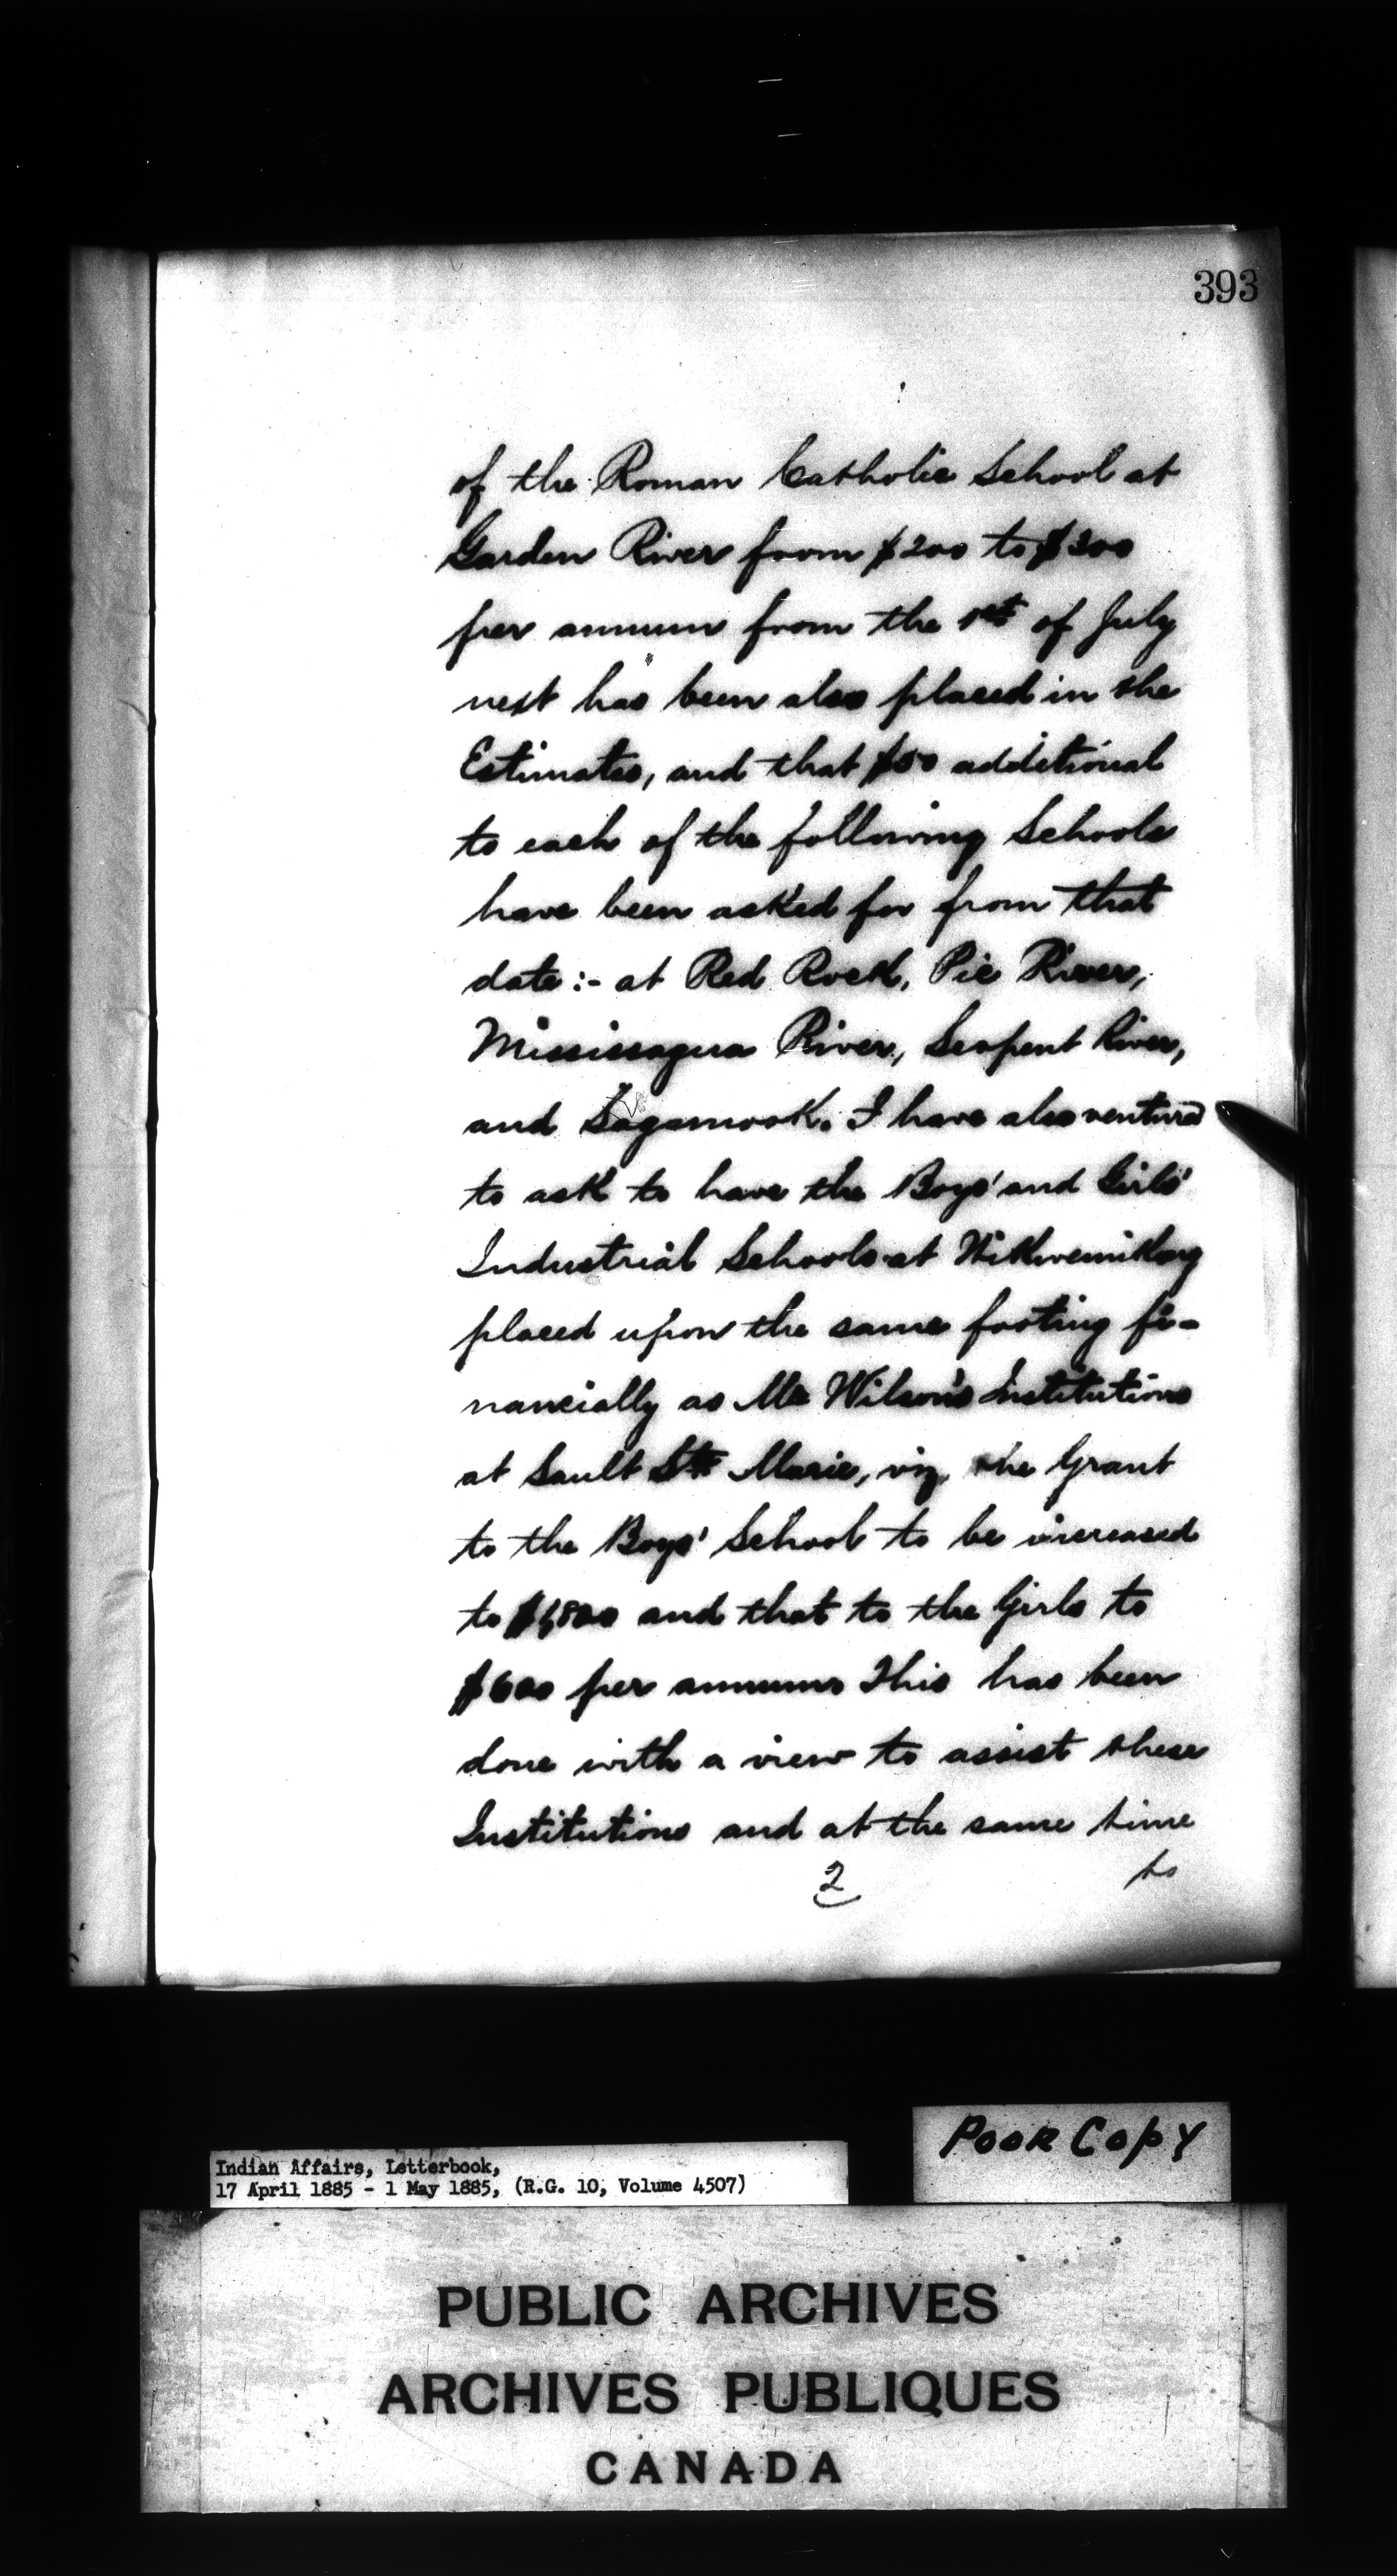 393
of the Roman Catholic School at
Garden River from $200 to $300
per annum from the 1st of July
next has been also placed in the
Estimates, and that $50 additional
to each of the following Schools
have been asked for from that
date :- at Red Rock, Pic River,
Mississagua River, Serpent River,
and Sagamook. I have also ventured
to ask to have the Boys' and Girls'
Industrial Schools at Wikwemikong
placed upon the same footing fi-
nancially as Mr Wilson's Institutions
at Sault Ste Marie, viz. the Grant
to the Boys' School to be increased
to $1,800 and that to the Girls to
$600 per annum This has been
done with a view to assist these
Institutions and at the same time
2 to
Poor Copy
Indian Affairs, Letterbook,
17 April 1885 - 1 May 1885, (R.G. 10, Volume 4507)
PUBLIC ARCHIVES
ARCHIVES PUBLIQUES
CANADA